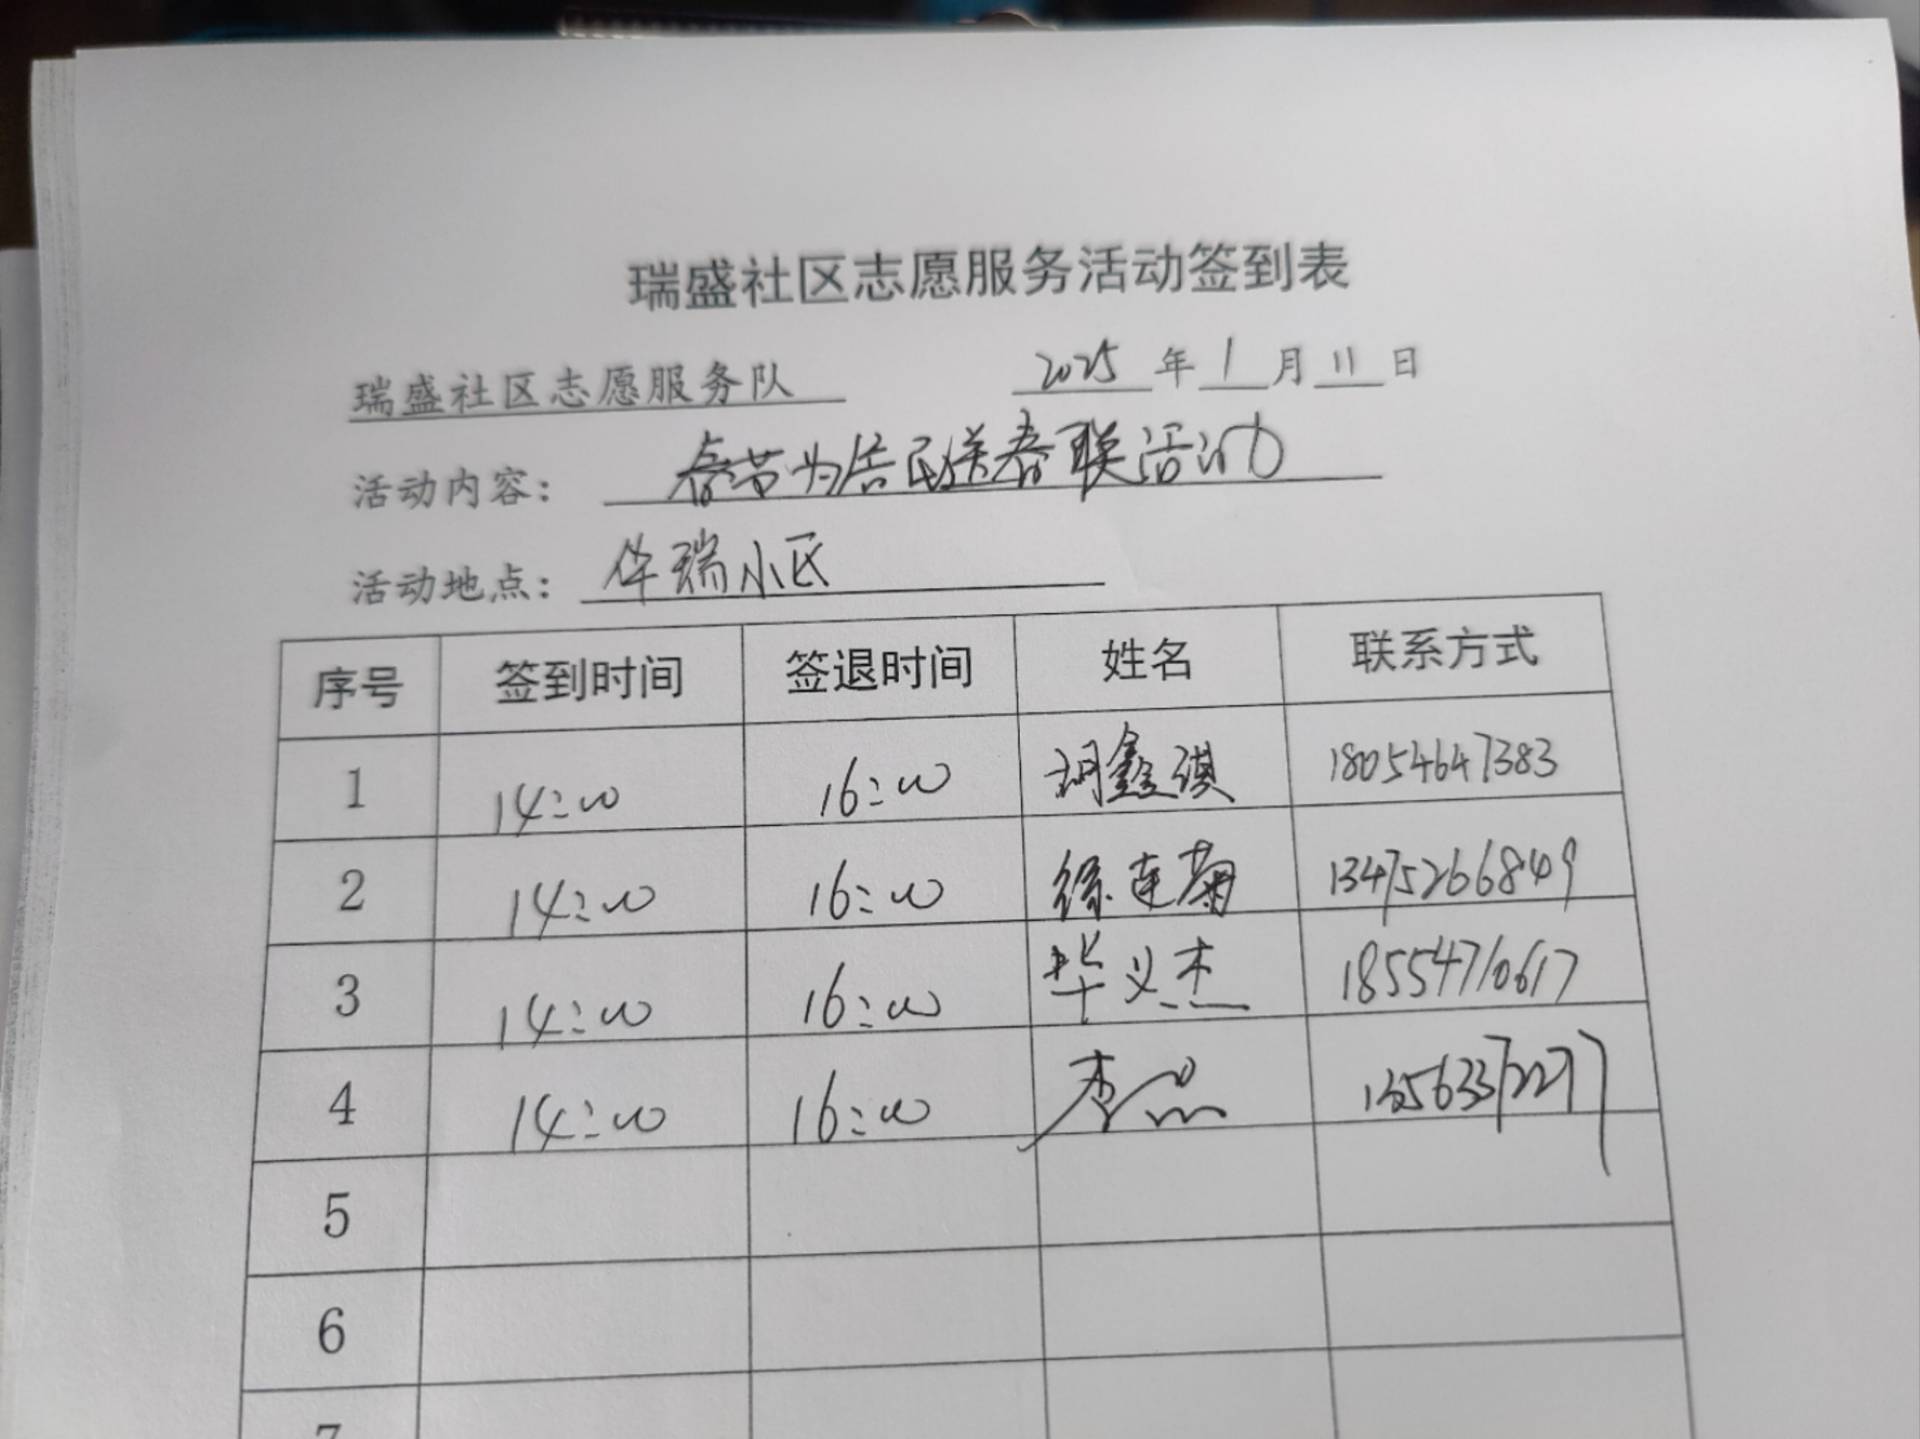 瑞盛社区志愿服务活动签到表
瑞盛社区志愿服务队 2025年1月11日
活动内容：春节为居民送春联活动
活动地点：华瑞小区
序号 签到时间 签退时间 姓名 联系方式
1 14:00 16:00 鑫琪 18054647383
2 14:00 16:00 徐连菊 13475266849
3 14:00 16:00 毕义杰 18554710617
4 14:00 16:00 李
5
6
7